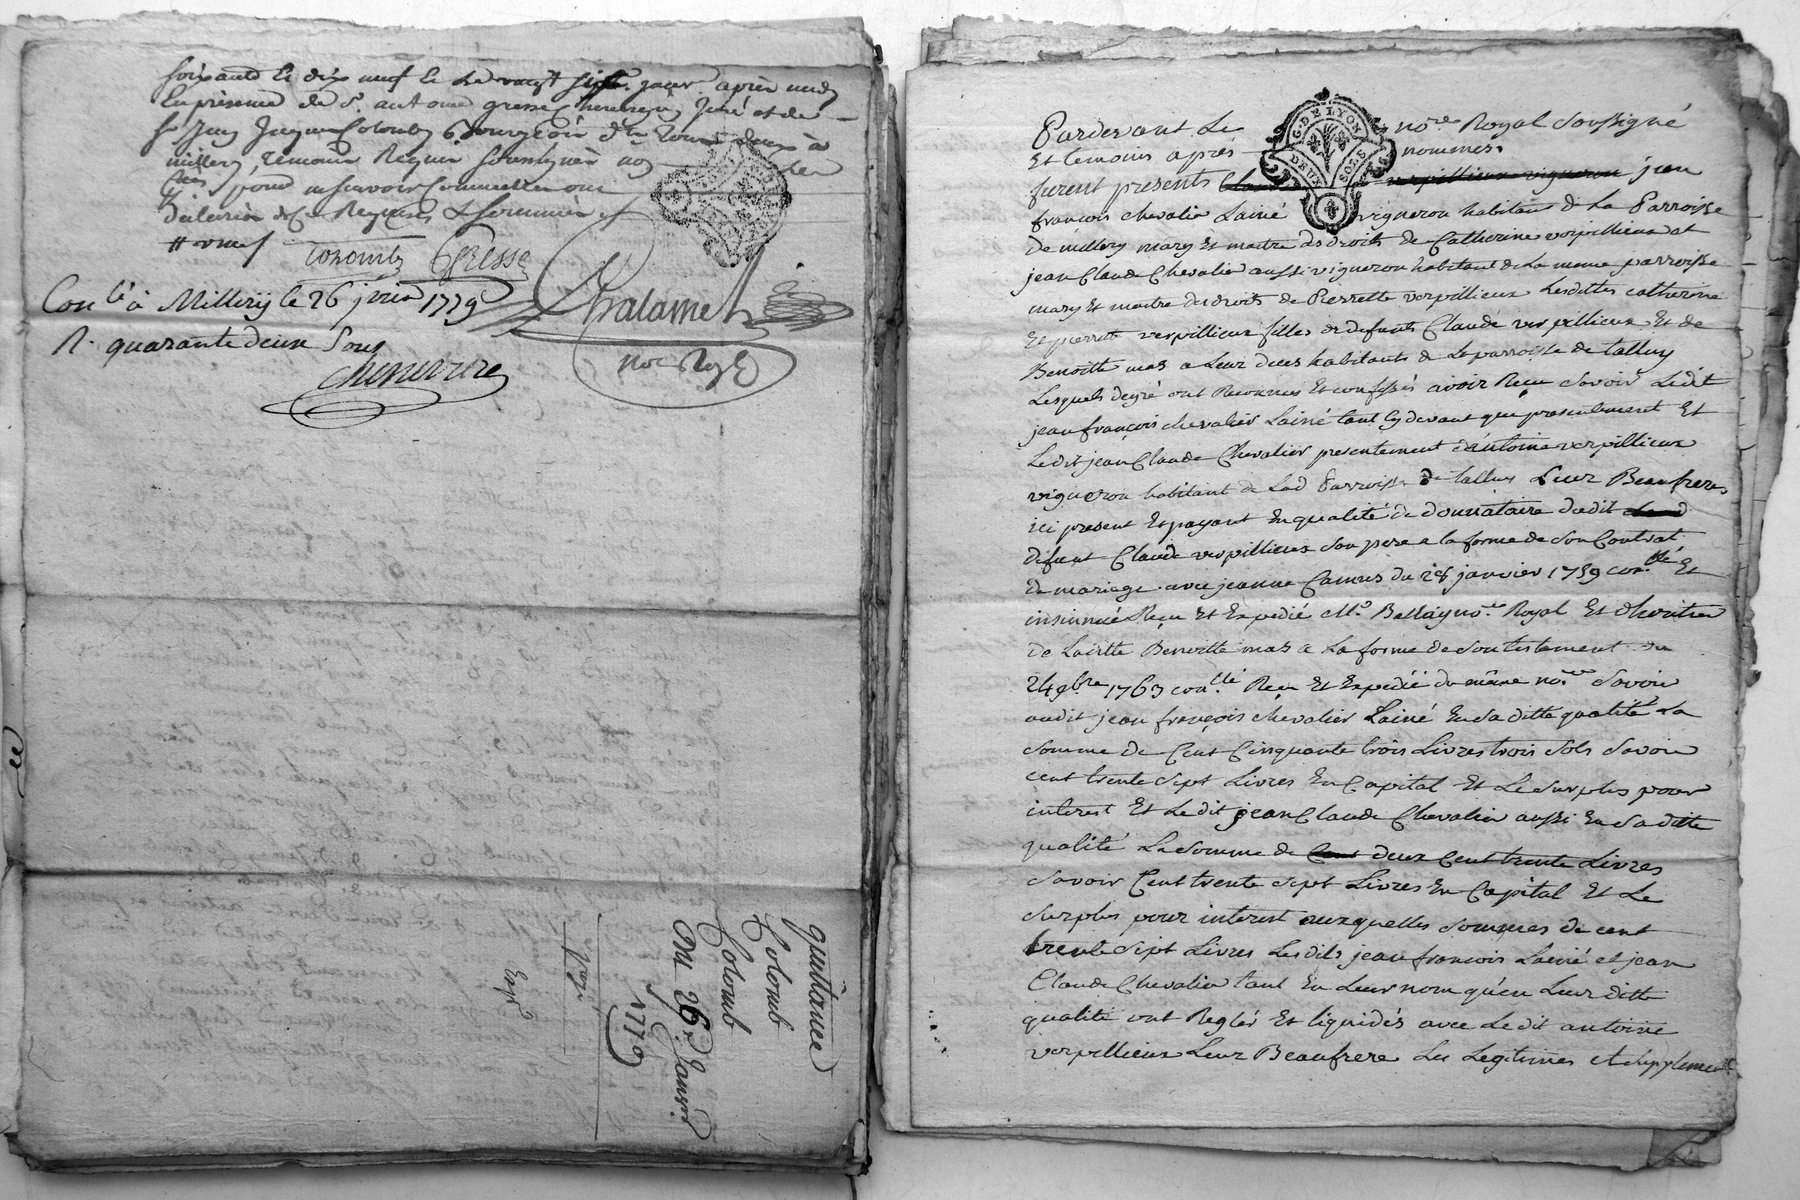 soixante et dix neuf et le vingt six jour apres midy
En presence de Sr. antoine gresse Juré et de
Sr Jean Jaques Colomb Bourgeois tous deux à
millery temoins Requis soussignés
pour ne scavoir comme elles ont
declaré de ce Requises et sommées
Colomb Gresse
Chalamel
not Roya
Con.lé à Millery le 26 janv. 1779
R. quarante deux Sous
Chenevrier
quittance
Colomb
Colomb
Du 26 Janvr.
1779
Expd
Pardevant Le no.re Royal Soussigné
Et temoins apres nommés
G. DE LYON
DEUX SOLS
furent presents verpillieux vigneron jean
francois chevalier Lainé vigneron habitant de La Parroisse
de millery mary Et maitre des droits de Catherine verpillieux et
jean Claude Chevalier aussi vigneron habitant de La meme parroisse
mary Et maitre des droits de Pierrette verpillieux Lesdittes catherine
Et pierrette verpillieux filles de defunts Claude verpillieux Et de
Benoitte mas a Leur deces habitants de La parroisse de talluy
Lesquels de gré ont Reconnus Et confessés avoir Reçu Savoir Ledit
jean françois chevalier Lainé tant cy devant que presentement Et
Ledit jean Claude Chevalier presentement d'antoine verpillieux
vigneron habitant de Lad Parroisse de talluy Leur Beaufrere
ici present Et payant En qualité de donnataire dudit
defunt Claude verpillieux Son pere a la forme de Son Contrat
de mariage avec jeanne Camus du 28 janvier 1759 con.lé Et
insinué Reçu Et Expedié M.e no.re Royal Et d'heritier
de Laditte Benoitte mas a La forme de Son testament du
24 9bre 1763 con.lé Reçu Et Expedié du même no.re Savoir
audit jean françois chevalier Lainé En Sa ditte qualité La
Somme de Cent Cinquante trois Livres trois Sols Savoir
cent trente Sept Livres En Capital Et Le Surplus pour
interest Et Ledit jean Claude Chevalier aussi En Sa ditte
qualité La Somme de Cent deux Cent trente Livres
Savoir Cent trente Sept Livres En Capital Et Le
Surplus pour interest auxquelles Sommes de cent
trente Sept Livres Lesdits jean francois Lainé et jean
Claude Chevalier tant En Leur nom qu'en Leur ditte
qualité ont Reglés Et liquidés avec Ledit antoine
verpillieux Leur Beaufrere Les Legitimes et Suplement